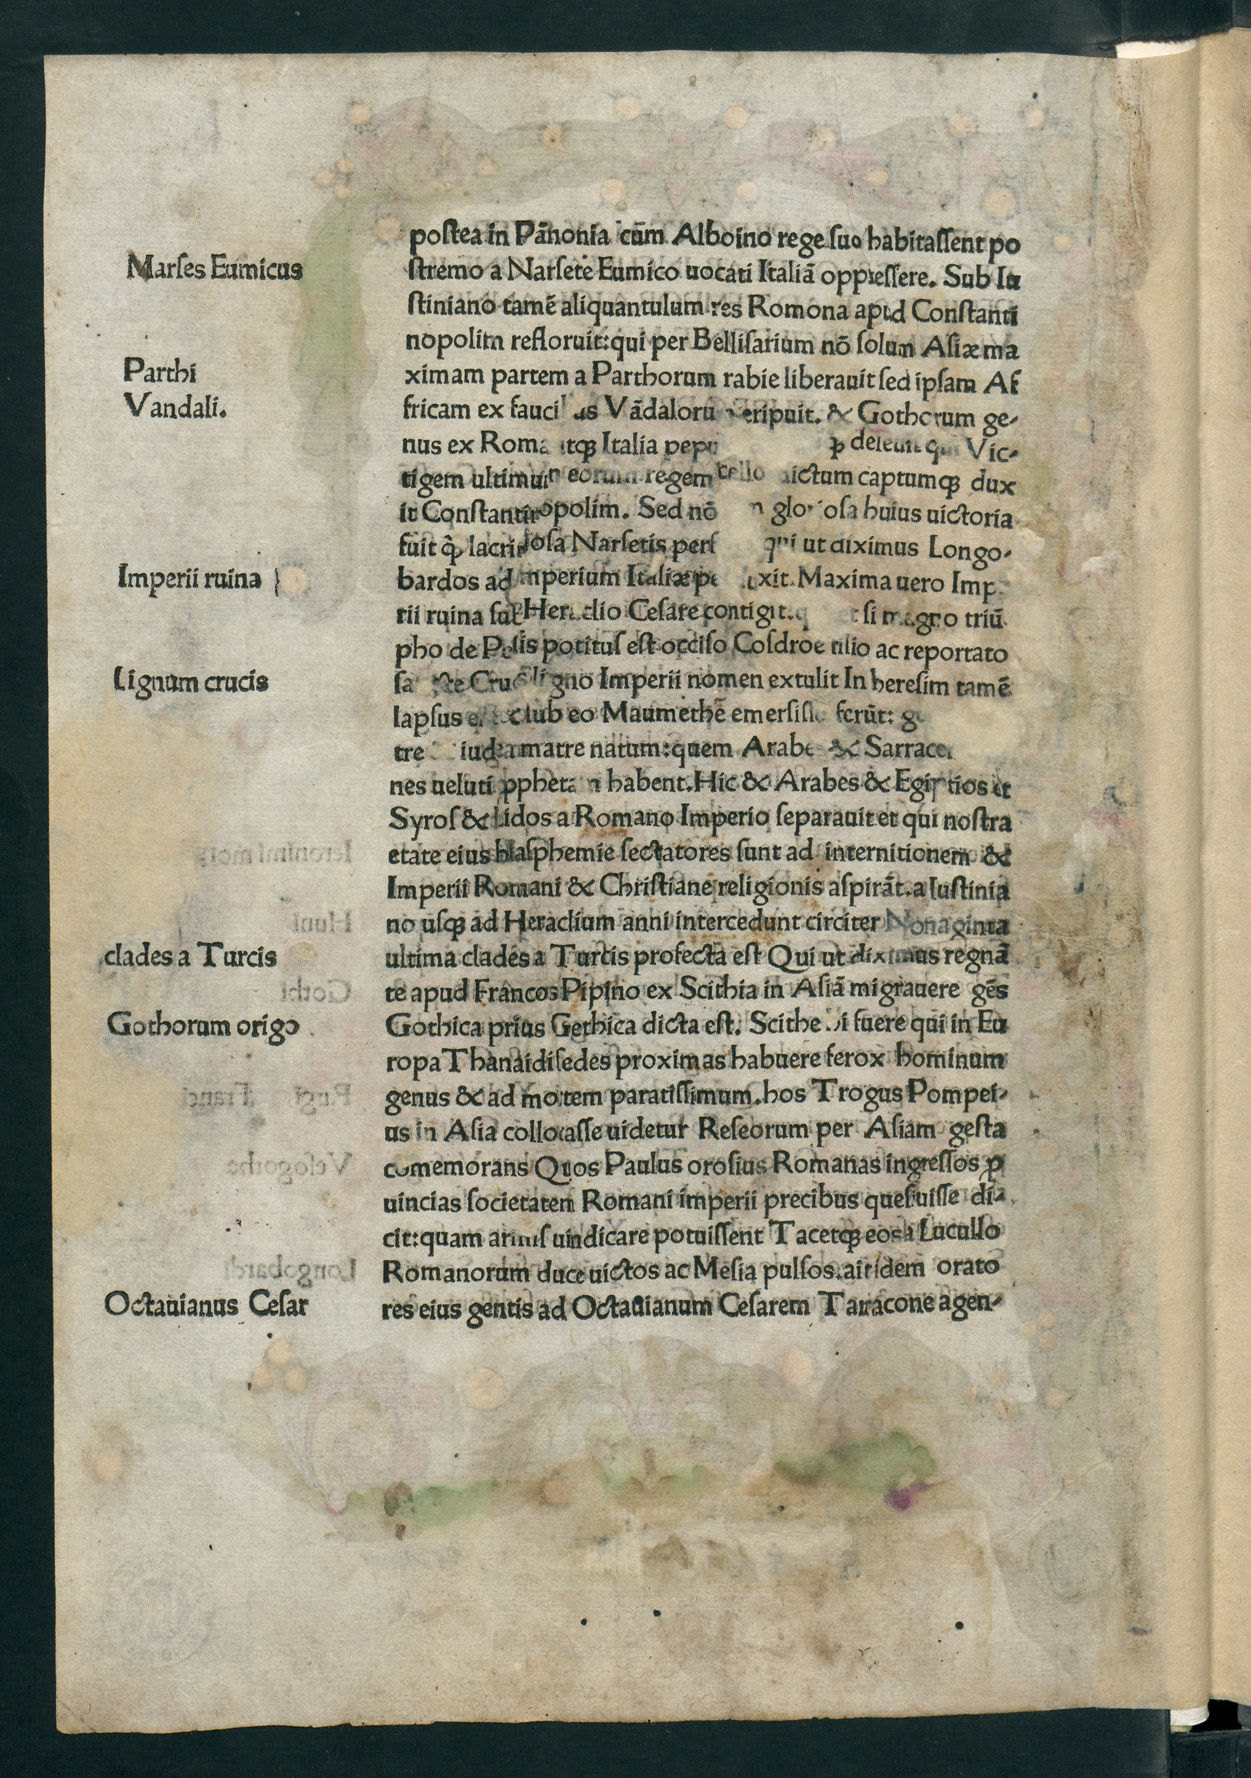 postea in Pānonia cūm Alboino rege suo habitassent po
Marses Eumicus
stremo a Narsete Eumico uocati Italiā oppressere. Sub Iu
stiniano tamē aliquantulum res Romona apud Constanti
nopolim refloruit: qui per Bellisarium nō solum Asiæ ma
Parthi
ximam partem a Parthorum rabie liberauit sed ipsam Af
Vandali.
fricam ex Vādalorū eripuit. & Gothorum ge-
nus ex Italia Vic-
tigem ultimum eorum regem uictum captumqꝫ dux
it Constantinopolim. Sed nō huius uictoria
fuit Narsetis ut diximus Longo-
Imperii ruina
bardos ad Imperium Italiæ Maxima uero
rii ruina sub Heraclio Cesare contigit. si magno triū
pho de Persis potitus est occiso Cosdroe filio ac reportato
Lignum crucis
ligno Imperii nomen extulit In heresim tamē
lapsus sub eo Maumethē
tre iudea matre natum: quem Arabes & Sarrace
nes ueluti ꝓphetam habent. Hic & Arabes & Egiptios et
Syros & Lidos a Romano Imperio separauit et qui nostra
etate eius blasphemie sectatores sunt ad internitionem &
Imperii Romani & Christiane religionis aspirāt. a Iustinia
no usqꝫ ad Heraclium anni intercedunt circiter Nonaginta
clades a Turcis
ultima clades a Turcis profecta est Qui ut diximus regnā
te apud Francos Pipino ex Scithia in Asiā migrauere gēs
Gothorum origo
Gothica prius Gethica dicta est. Scithe hi fuere qui in Eu
ropa Thanaidi sedes proximas habuere ferox hominum
genus & ad mortem paratissimum. hos Trogus Pompei-
us in Asia collocasse uidetur Reseorum per Asiam gesta
comemorans Quos Paulus orosius Romanas ingressos ꝓ
uincias societatem Romani imperii precibus quesiuisse di-
cit: quam armis uindicare potuissent Tacetqꝫ eos a Lucullo
Romanorum duce uictos ac Mesia pulsos. ait idem orato
Octauianus Cesar
res eius gentis ad Octauianum Cesarem Tarracone agen-